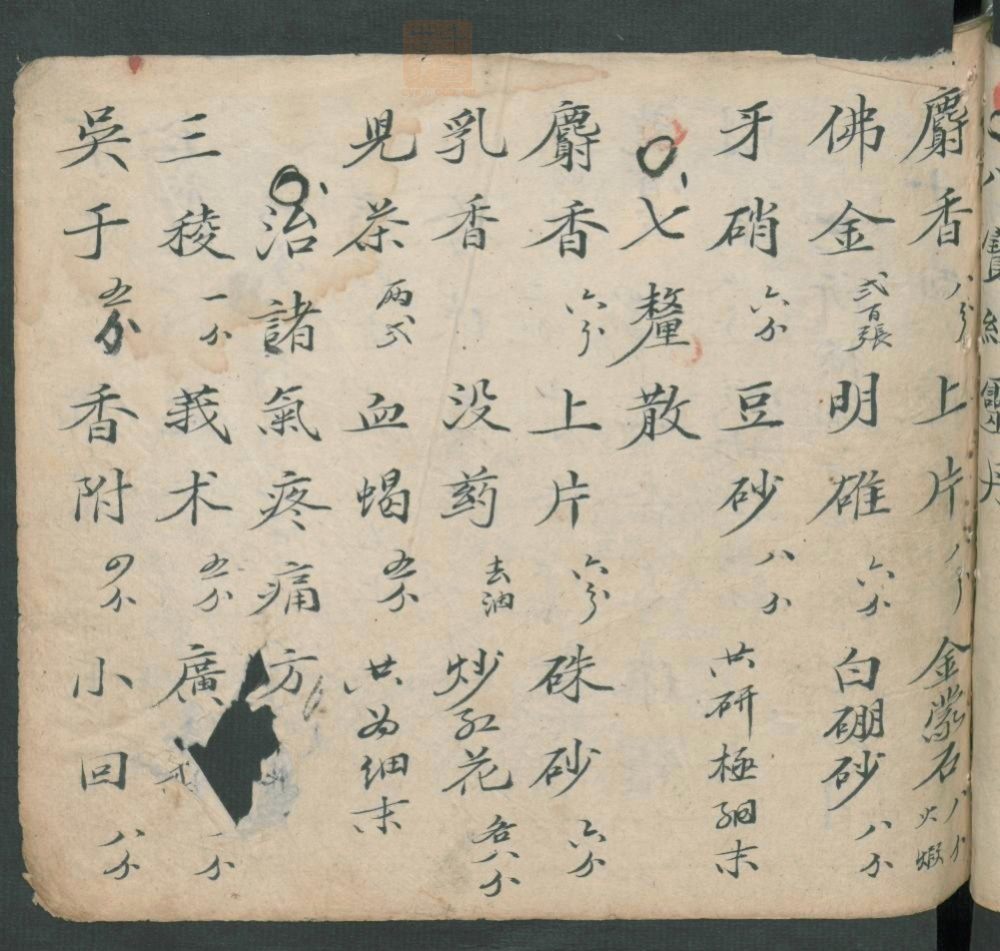 八寶紅靈丹
麝香八分上片八分金蒙石八分火煆
佛金弍百張明雄六分白硼砂八分
牙硝六分豆砂八分共研極細末
七釐散
麝香六分上片六分硃砂六分
乳香没药去油炒紅花各八分
児茶兩弍血蝎五分共為細末
治諸氣疼痛方
三稜一分莪术五分廣
吳于五分香附四分小回八分